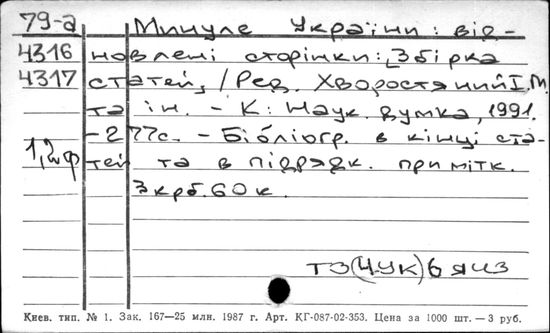 79-а Минуле України: від-
4316 новлені сторінки: [Збірка
4317 статей] / Ред. Хворостяний І.М.
та ін. - К: Наук. думка, 1991.
- 277с. - Бібліогр. в кінці ста-
тей та в підрядк. примітк.
3 крб. 60 к.
ТЗ(4УК)6
Киев. тип. № 1. Зак. 167—25 млн. 1987 г. Арт. КГ-087-02-353. Цена за 1000 шт. — 3 руб.